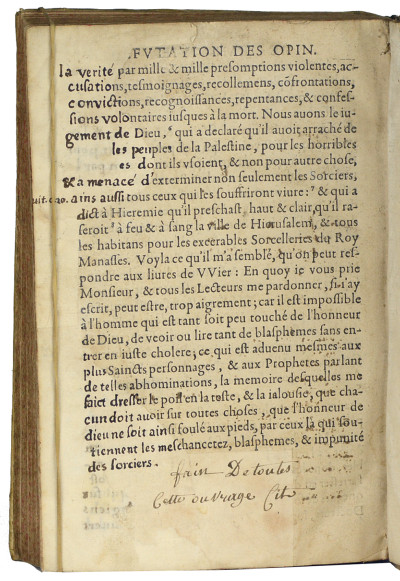 FVTATION DES OPIN.
la verité par mille & mille presomptions violentes, ac-
cusations, tesmoignages, recollemens, cõfrontations,
convictions, recognoissances, repentances, & confes-
sions volontaires iusques à la mort. Nous auons le iu-
gement de Dieu, qui a declaré qu'il auoit arraché de
les peuples de la Palestine, pour les horribles
es dont ils vsoient, & non pour autre chose,
& a menacé d'exterminer non seulement les Sorciers,
ains aussi tous ceux qui les souffriront viure: & qui a
dict à Hieremie qu'il preschast, haut & clair, qu'il ra-
seroit à feu & à sang la ville de Hierusalem, & tous
les habitans pour les execrables Sorcelleries du Roy
Manasses. Voyla ce qu'il m'a semblé, qu'on peut res-
pondre aux liures de VVier: En quoy ie vous prie
Monsieur, & tous les Lecteurs me pardonner, si i'ay
escrit, peut estre, trop aigrement; car il est impossible
à l'homme qui est tant soit peu touché de l'honneur
de Dieu, de veoir ou lire tant de blasphemes sans en-
trer en iuste cholere; ce qui est aduenu mesmes aux
plus Saincts personnages, & aux Prophetes parlant
de telles abhominations, la memoire desquelles me
faict dresser le poil en la teste, & la ialousie, que cha-
cun doit auoir sur toutes choses, que l'honneur de
dieu ne soit ainsi foulé aux pieds, par ceux là qui sou-
tiennent les meschancetez, blasphemes, & impunité
des sorciers.
fain De toutes
Cette ouvrage Cite